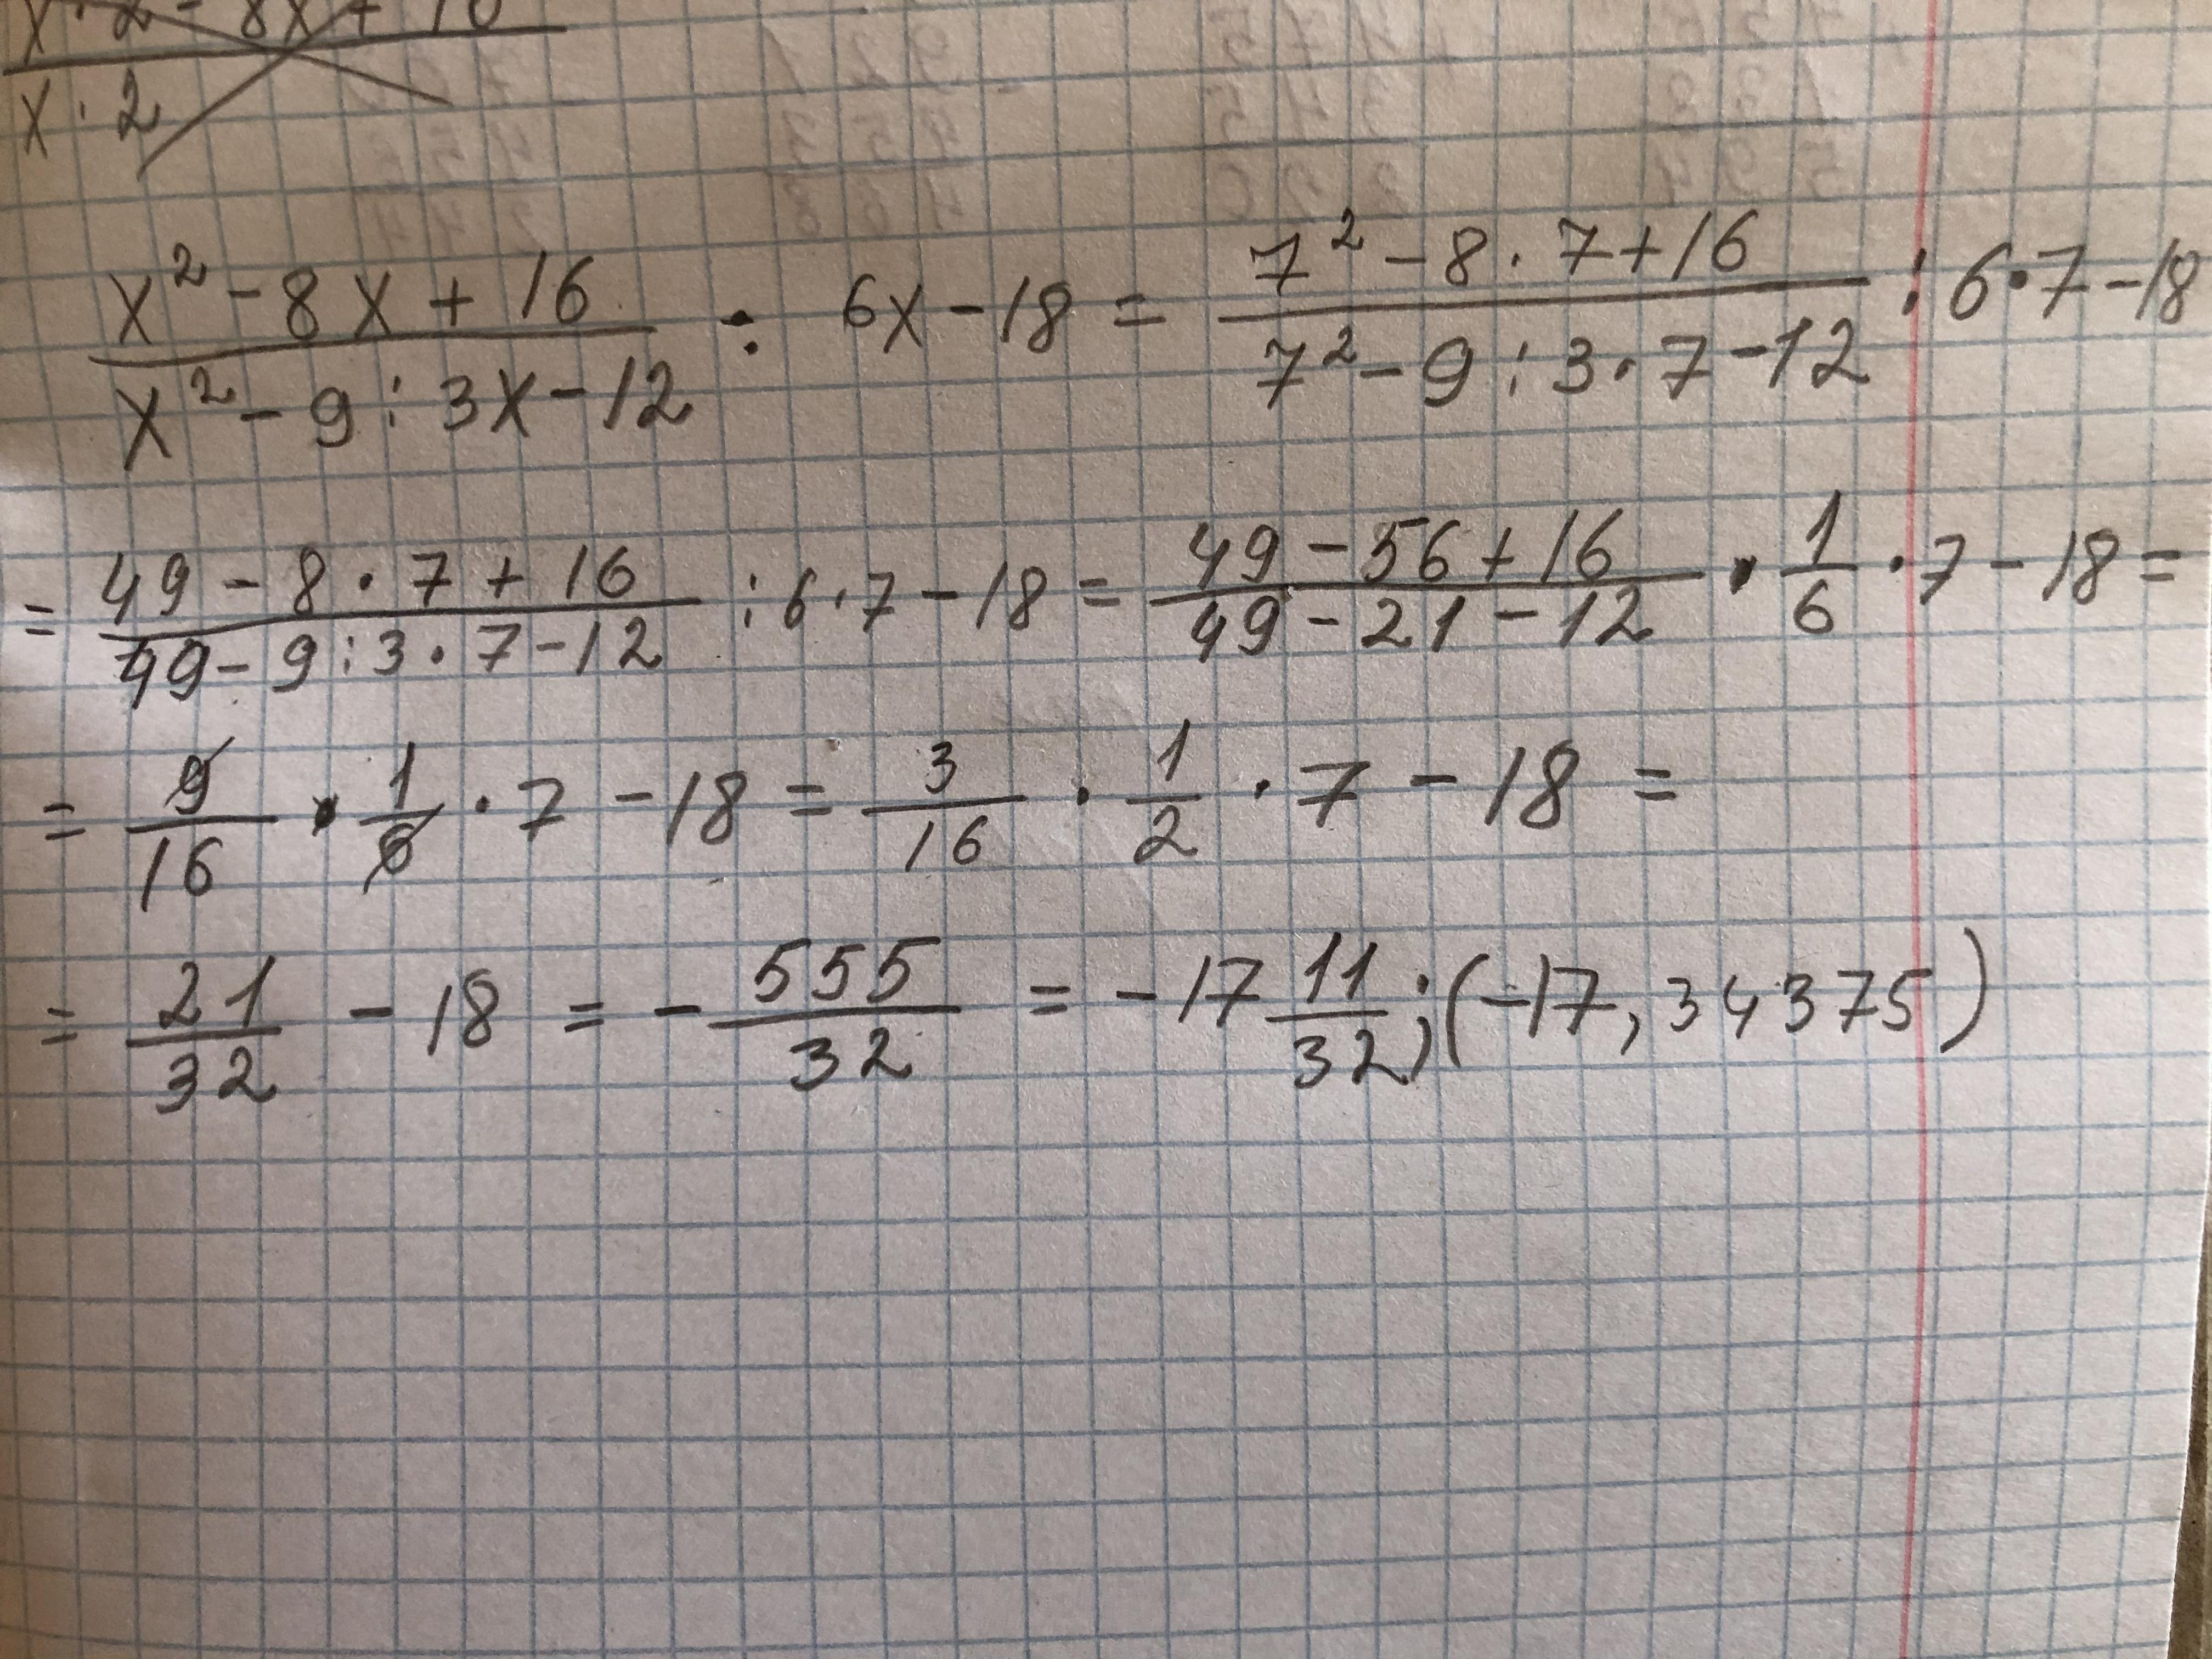 x · 2 - 8x + 16
x · 2
x² - 8x + 16 / x² - 9 : 3x - 12 : 6x - 18 = 7² - 8 · 7 + 16 / 7² - 9 : 3 · 7 - 12 : 6 · 7 - 18
= 49 - 8 · 7 + 16 / 49 - 9 : 3 · 7 - 12 : 6 · 7 - 18 = 49 - 56 + 16 / 49 - 21 - 12 · 1/6 · 7 - 18 =
= 9/16 · 1/6 · 7 - 18 = 3/16 · 1/2 · 7 - 18 =
= 21/32 - 18 = - 555/32 = - 17 11/32; (-17,34375)